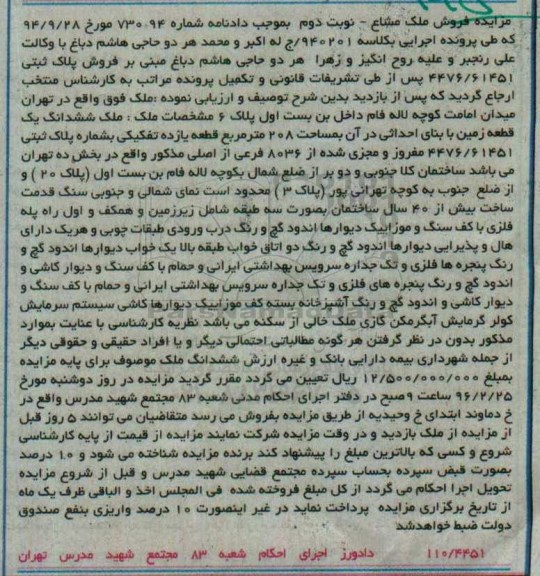 مزایده فروش ملک مشاع - نوبت دوم بموجب دادنامه شماره ۹۴-۷۳۰ مورخ ۹۴/۹/۲۸
که طی پرونده اجرایی بکلاسه ۹۴۰۲۰۱/ج له اکبر و محمد هر دو حاجی هاشم دباغ با وکالت
علی رنجبر و علیه روح انگیز و زهرا هر دو حاجی هاشم دباغ مبنی بر فروش پلاک ثبتی
۴۴۷۶/۶۱۴۵۱ پس از طی تشریفات قانونی و تکمیل پرونده مراتب به کارشناس منتخب
ارجاع گردید که پس از بازدید بدین شرح توصیف و ارزیابی نموده :ملک فوق واقع در تهران
میدان امامت کوچه لاله فام داخل بن بست اول پلاک ۶ مشخصات ملک : ملک ششدانگ یک
قطعه زمین با بنای احداثی در آن بمساحت ۲۰۸ مترمربع قطعه یازده تفکیکی بشماره پلاک ثبتی
۴۴۷۶/۶۱۴۵۱ مفروز و مجزی شده از ۸۰۳۶ فرعی از اصلی مذکور واقع در بخش ده تهران
می باشد ساختمان کلا جنوبی و دو بر از ضلع شمال بکوچه لاله فام بن بست اول (پلاک ۲۰ ) و
از ضلع جنوب به کوچه تهرانی پور (پلاک ۳ ) محدود است نمای شمالی و جنوبی سنگ قدمت
ساخت بیش از ۴۰ سال ساختمان بصورت سه طبقه شامل زیرزمین و همکف و اول راه پله
فلزی با کف سنگ و موزاییک دیوارها اندود گچ و رنگ درب ورودی طبقات چوبی و هریک دارای
هال و پذیرایی دیوارها اندود گچ و رنگ دو اتاق خواب طبقه بالا یک خواب دیوارها اندود گچ و
رنگ پنجره ها فلزی و تک جداره سرویس بهداشتی ایرانی و حمام با کف سنگ و دیوار کاشی و
اندود گچ و رنگ پنجره های فلزی و تک جداره سرویس بهداشتی ایرانی و حمام با کف سنگ و
دیوار کاشی و اندود گچ و رنگ آشپزخانه بسته کف موزاییک دیوارها کاشی سیستم سرمایش
کولر گرمایش آبگرمکن گازی ملک خالی از سکنه می باشد نظریه کارشناسی با عنایت بموارد
مذکور بدون در نظر گرفتن هر گونه مطالباتی احتمالی دیگر و یا افراد حقیقی و حقوقی دیگر
از جمله شهرداری بیمه دارایی بانک و غیره ارزش ششدانگ ملک موصوف برای پایه مزایده
بمبلغ ۱۲/۵۰۰/۰۰۰/۰۰۰ ریال تعیین می گردد مقرر گردید مزایده در روز دوشنبه مورخ
۹۶/۲/۲۵ ساعت ۹صبح در دفتر اجرای احکام مدنی شعبه ۸۳ مجتمع شهید مدرس واقع در
خ دماوند ابتدای خ وحیدیه از طریق مزایده بفروش می رسد متقاضیان می توانند ۵ روز قبل
از مزایده از ملک بازدید و در وقت مزایده شرکت نمایند مزایده از قیمت از پایه کارشناسی
شروع و کسی که بالاترین مبلغ را پیشنهاد کند برنده مزایده شناخته می شود و ۱۰ درصد
بصورت قبض سپرده بحساب سپرده مجتمع قضایی شهید مدرس و قبل از شروع مزایده
تحویل اجرا احکام می گردد از کل مبلغ فروخته شده فی المجلس اخذ و الباقی ظرف یک ماه
از تاریخ برگزاری مزایده پرداخت نماید در غیر اینصورت ۱۰ درصد واریزی بنفع صندوق
دولت ضبط خواهدشد
۱۱۰/۴۴۵۱ دادورز اجرای احکام شعبه ۸۳ مجتمع شهید مدرس تهران